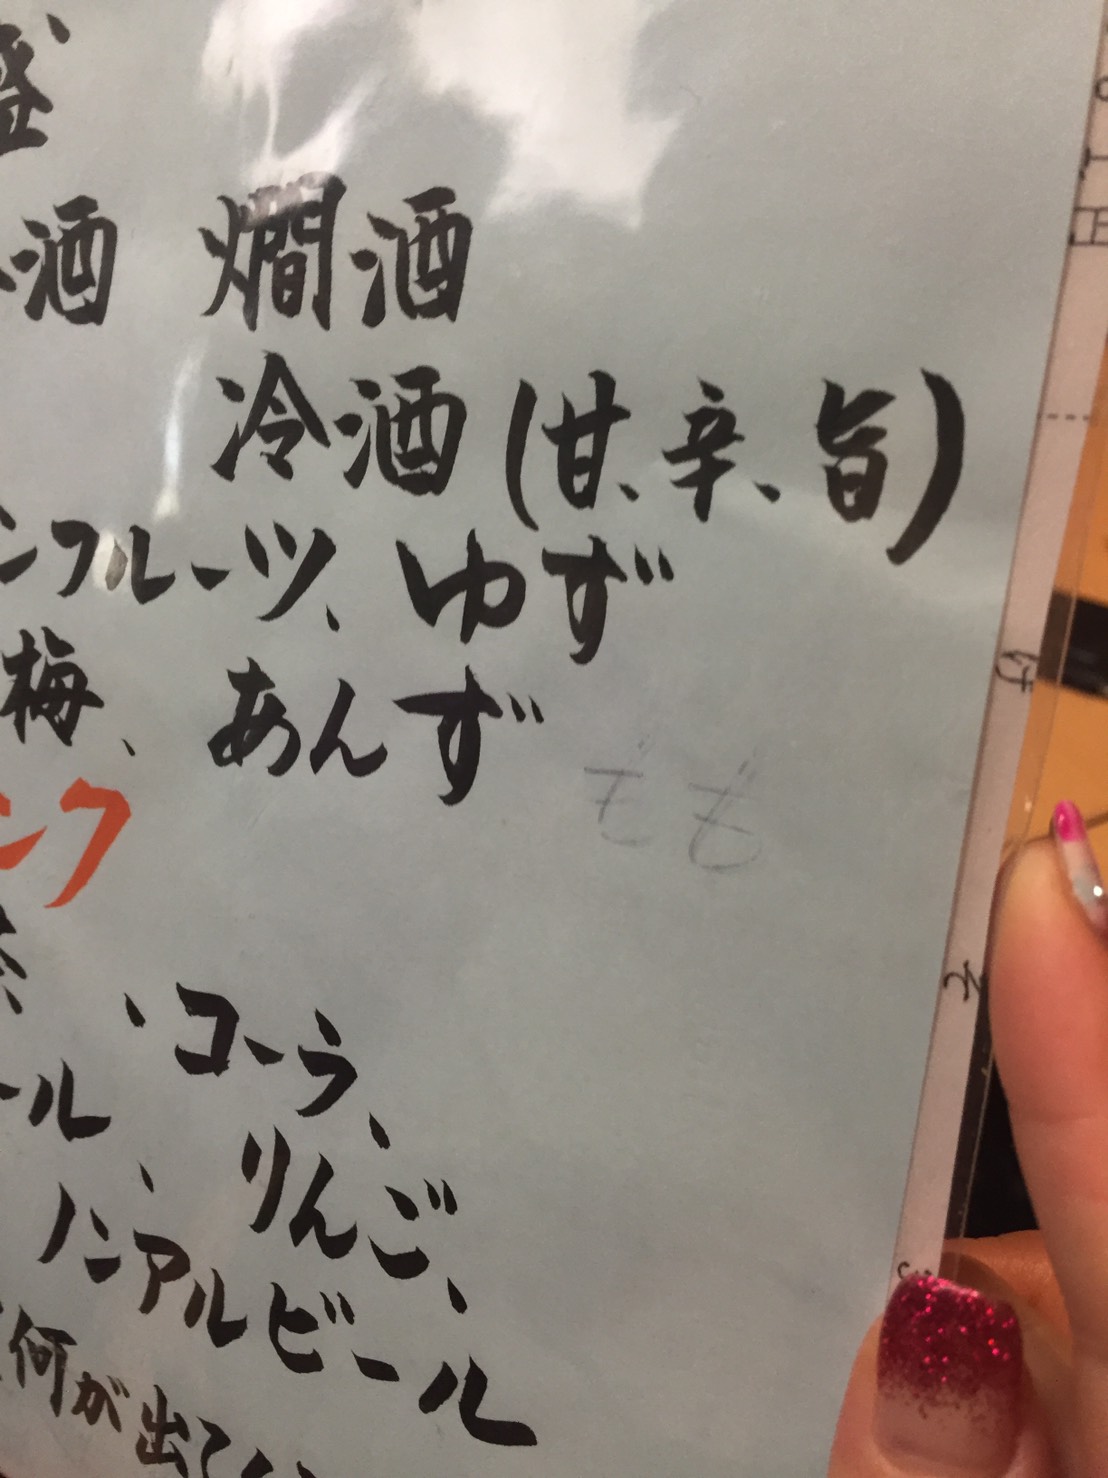 盛
酒 燗酒
冷酒(甘、辛、旨)
ンフルーツ、ゆず
梅、あんず
もも
ンク
茶、コーラ、
ール、りんご、
ノンアルビール
何が出て